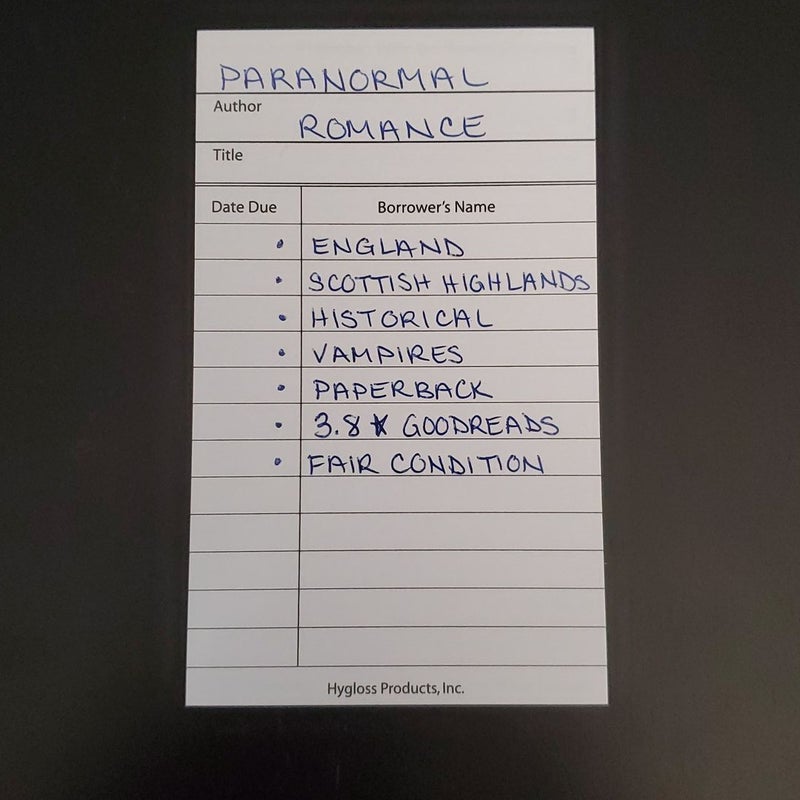 PARANORMAL
Author
ROMANCE
Title
Date Due Borrower's Name
• ENGLAND
• SCOTTISH HIGHLANDS
• HISTORICAL
• VAMPIRES
• PAPERBACK
• 3.8 ★ GOODREADS
• FAIR CONDITION
Hygloss Products, Inc.